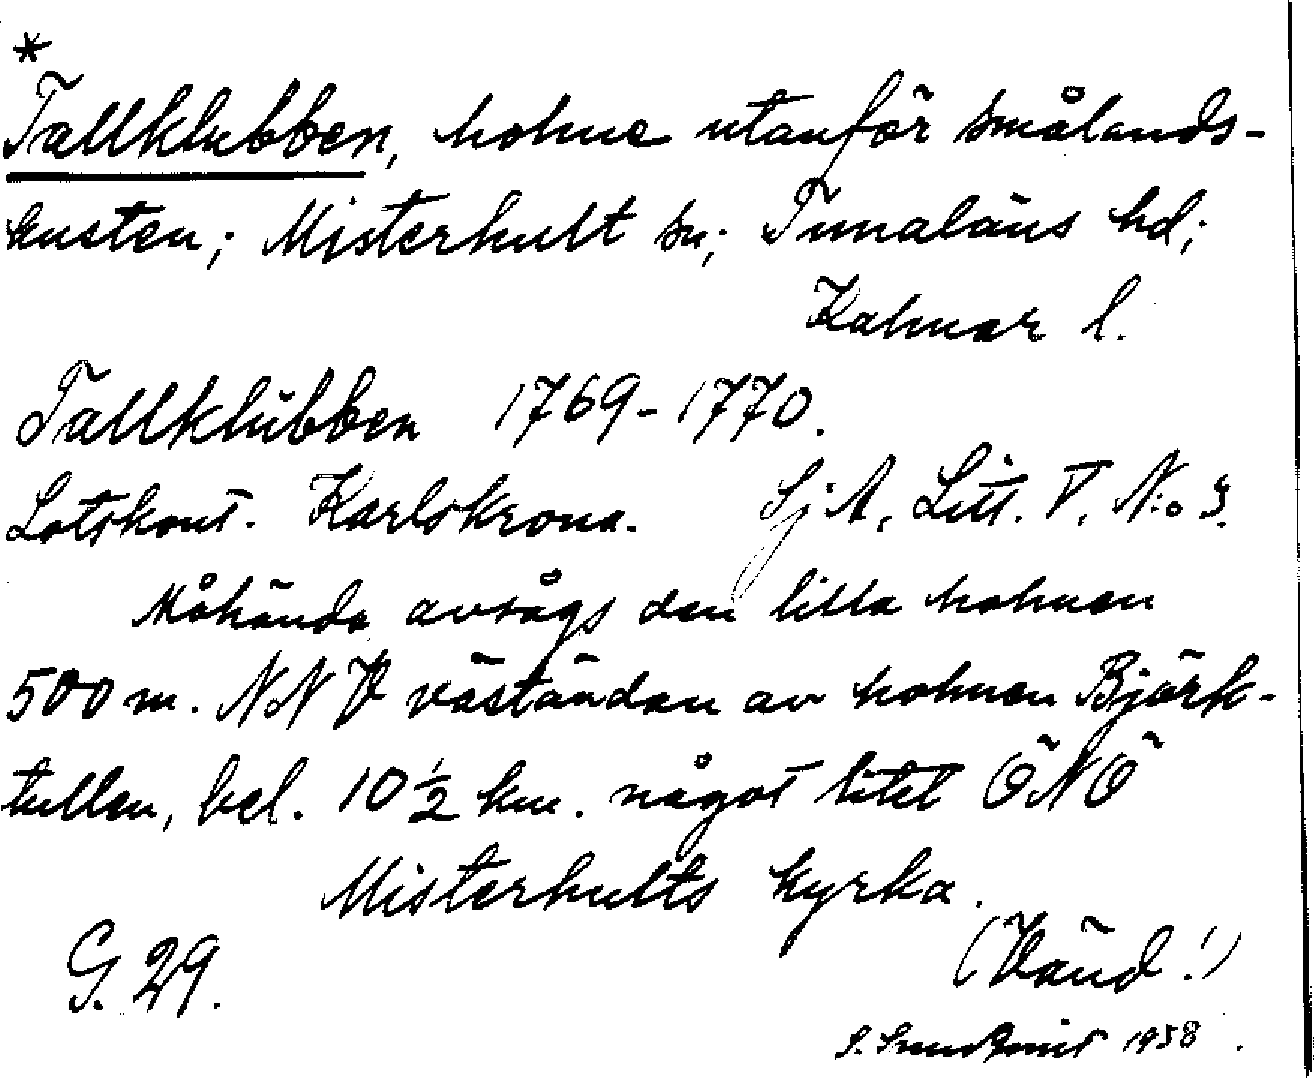 *
Tallklubben, holme utanför smålands-
kusten; Misterhult sn; Tunaläns hd;
Kalmar l.
Tallklübben 1769-1770.
Lotskont. Karlskrona. SjA, Litt. V. N:o 3.
Måhända avsågs den lilla holmen
500 m. NNV väständan av holmen Björk-
tullen, bel. 10 1/2 km. något litet ÖNÖ
Misterhults kyrka.
(Vänd!)
G. 29.
1958.